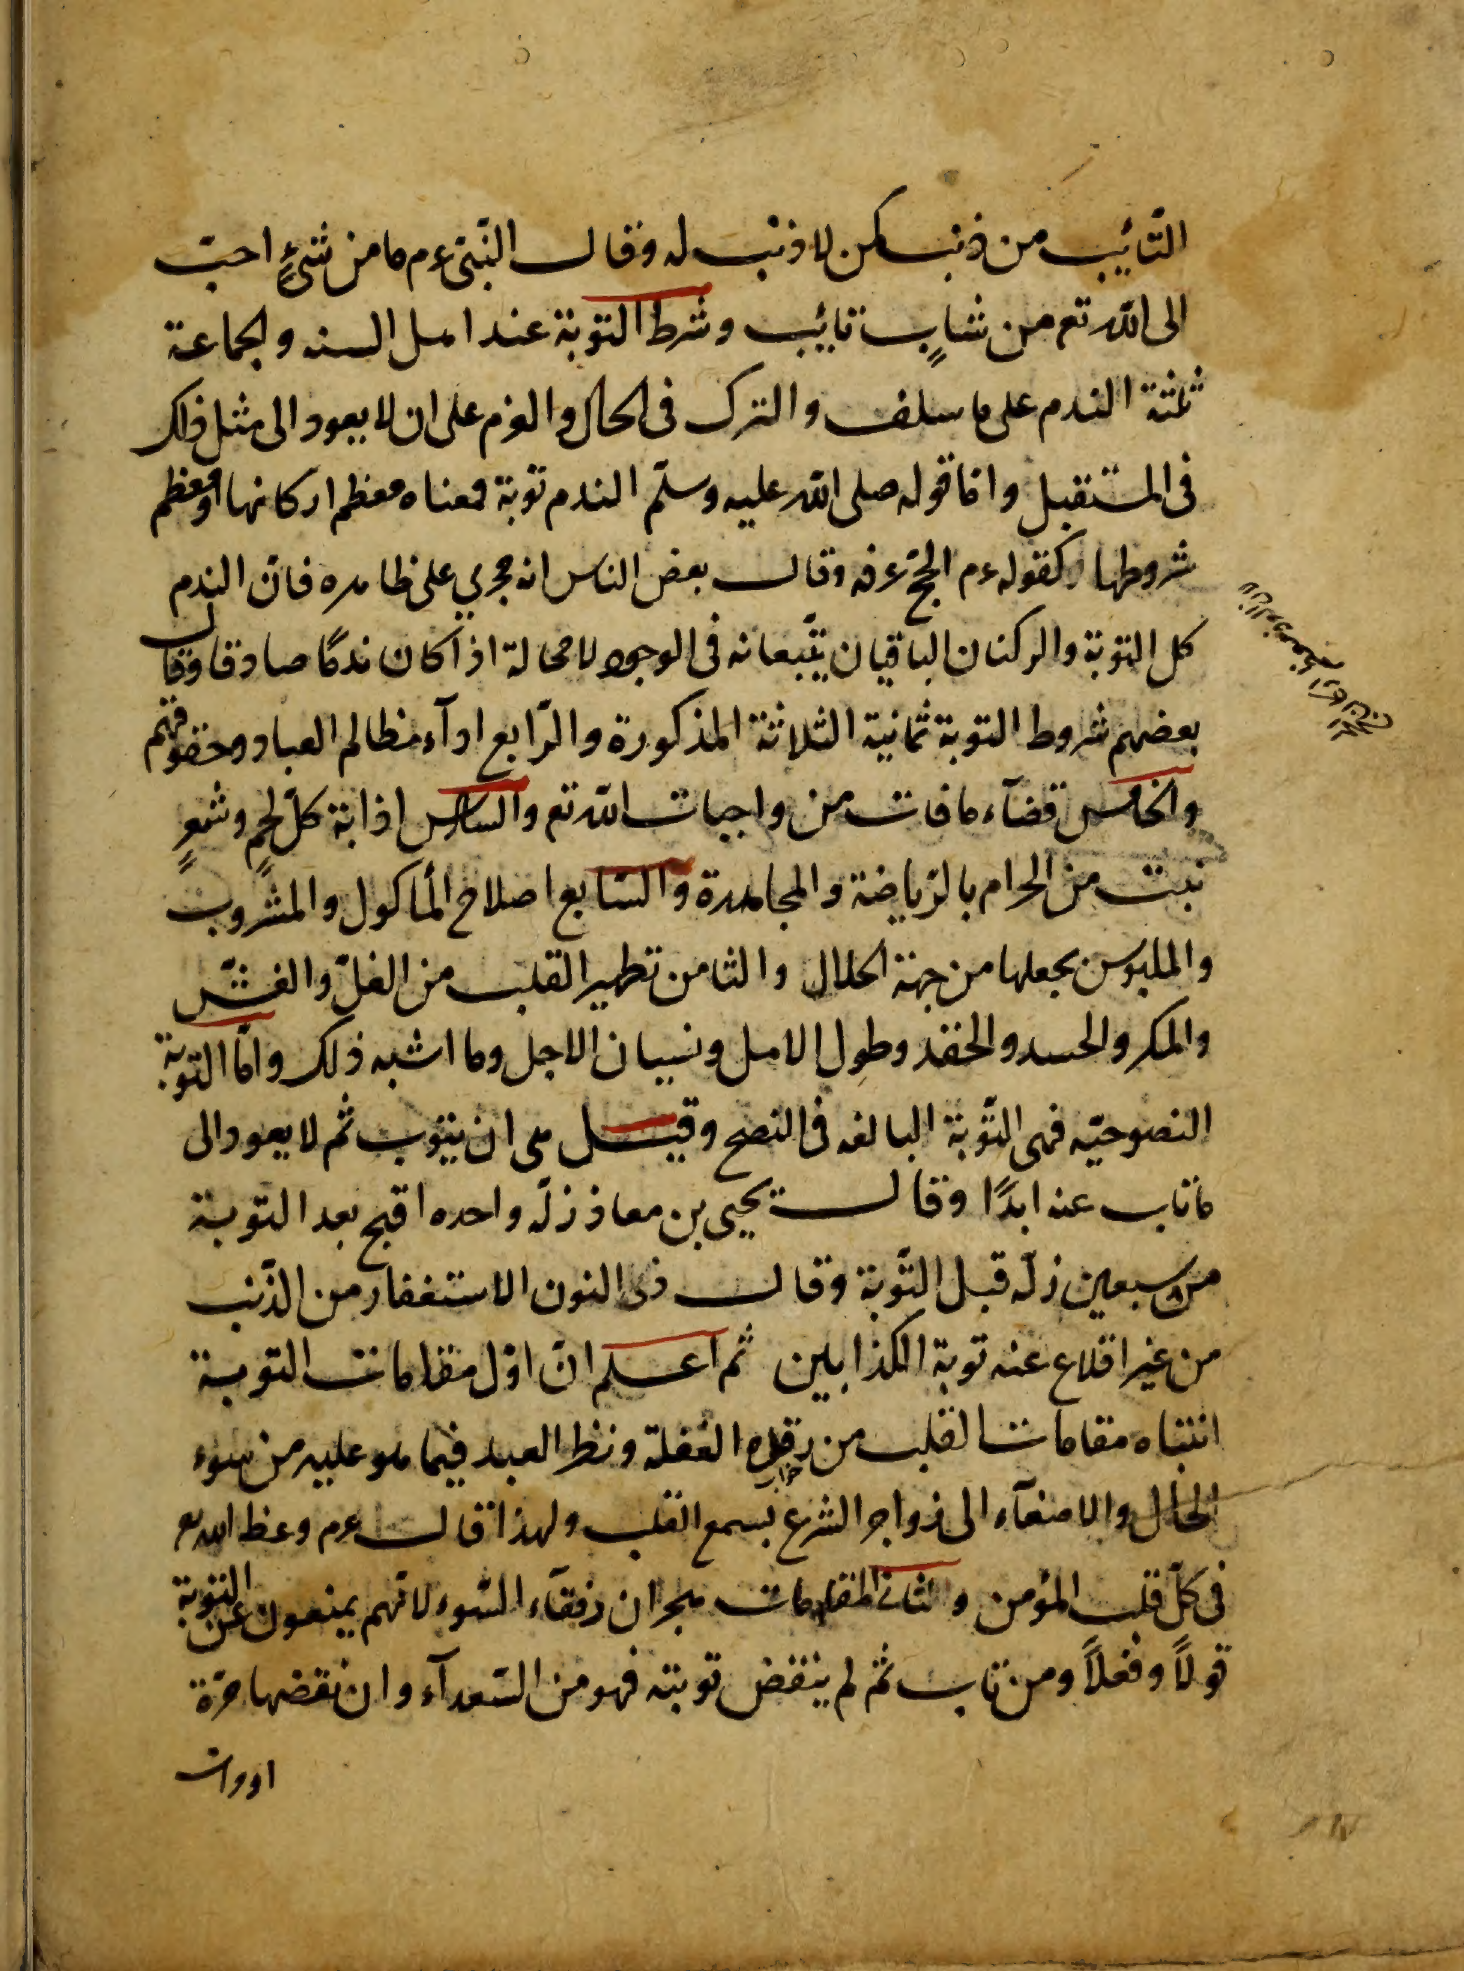 التّائيب من ذنب كمن لا ذنب له وقال النّبيّ ءم ما من شيءٍ احبّ
الى اللّه تع من شابٍ تائيب وشرط التوبة عند اهل السنه والجماعة
ثلثة الندم على ما سلف والترك فى الحال والعزم على ان لا يعود الى مثل ذلك
فى المستقبل وامّا قوله صلى اللّه عليه وسلّم الندم توبة فمعناه معظم اركانها او معظم
شروطها كقوله ءم الحجّ عرفه وقال بعض الناس انه مجري على ظاهره فانّ الندم
كل التوبة والركنان الباقيان يتّبعانه فى الوجود لا محالة اذا كان ندمًا صادقا وقال
بعضهم شروط التوبة ثمانية الثلاثة المذكورة والرّابع ادآء مظالم العباد وحقوقهم
والخامس قضآء ما فات من واجبات اللّه تع والسادس اذابة كلّ لحمٍ وشعرٍ
نبت من الحرام بالرّياضة والمجاهدة والسّابع اصلاح المأكول والمشروب
والملبوس بجعلها من جهة الحلال والثامن تطهير القلب من الغلّ والغشّ
والمكر والحسد والحقد وطول الامل ونسيان الاجل وما اشبه ذلك وامّا التوبة
النصوحيّه فهى التّوبة البالغه فى النصح وقيل هى ان يتوب ثم لا يعود الى
ما تاب عنه ابدًا وقال يحيى بن معاذ زلّه واحده اقبح بعد التوبة
من سبعين زلّه قبل التّوبة وقال ذى النون الاستغفار من الذّنب
من غير اقلاع عنه توبة الكذابين ثم اعلم انّ اوّل مقامات التوبة
انتباه مقامات القلب من رقدة الغفلة ونظر العبد فيما هو عليه من سوء
الحال والاصغآء الى زواجر الشرع بسمع القلب ولهذا قال ءم وعظ الله تع
فى كلّ قلب المؤمن والثانى المقامات هجران رفقآء السّوء لانّهم يمنعون عن التوبة
قولاً وفعلاً ومن تاب ثم لم ينقض توبته فهو من السّعدآء وان نقضها مرّة